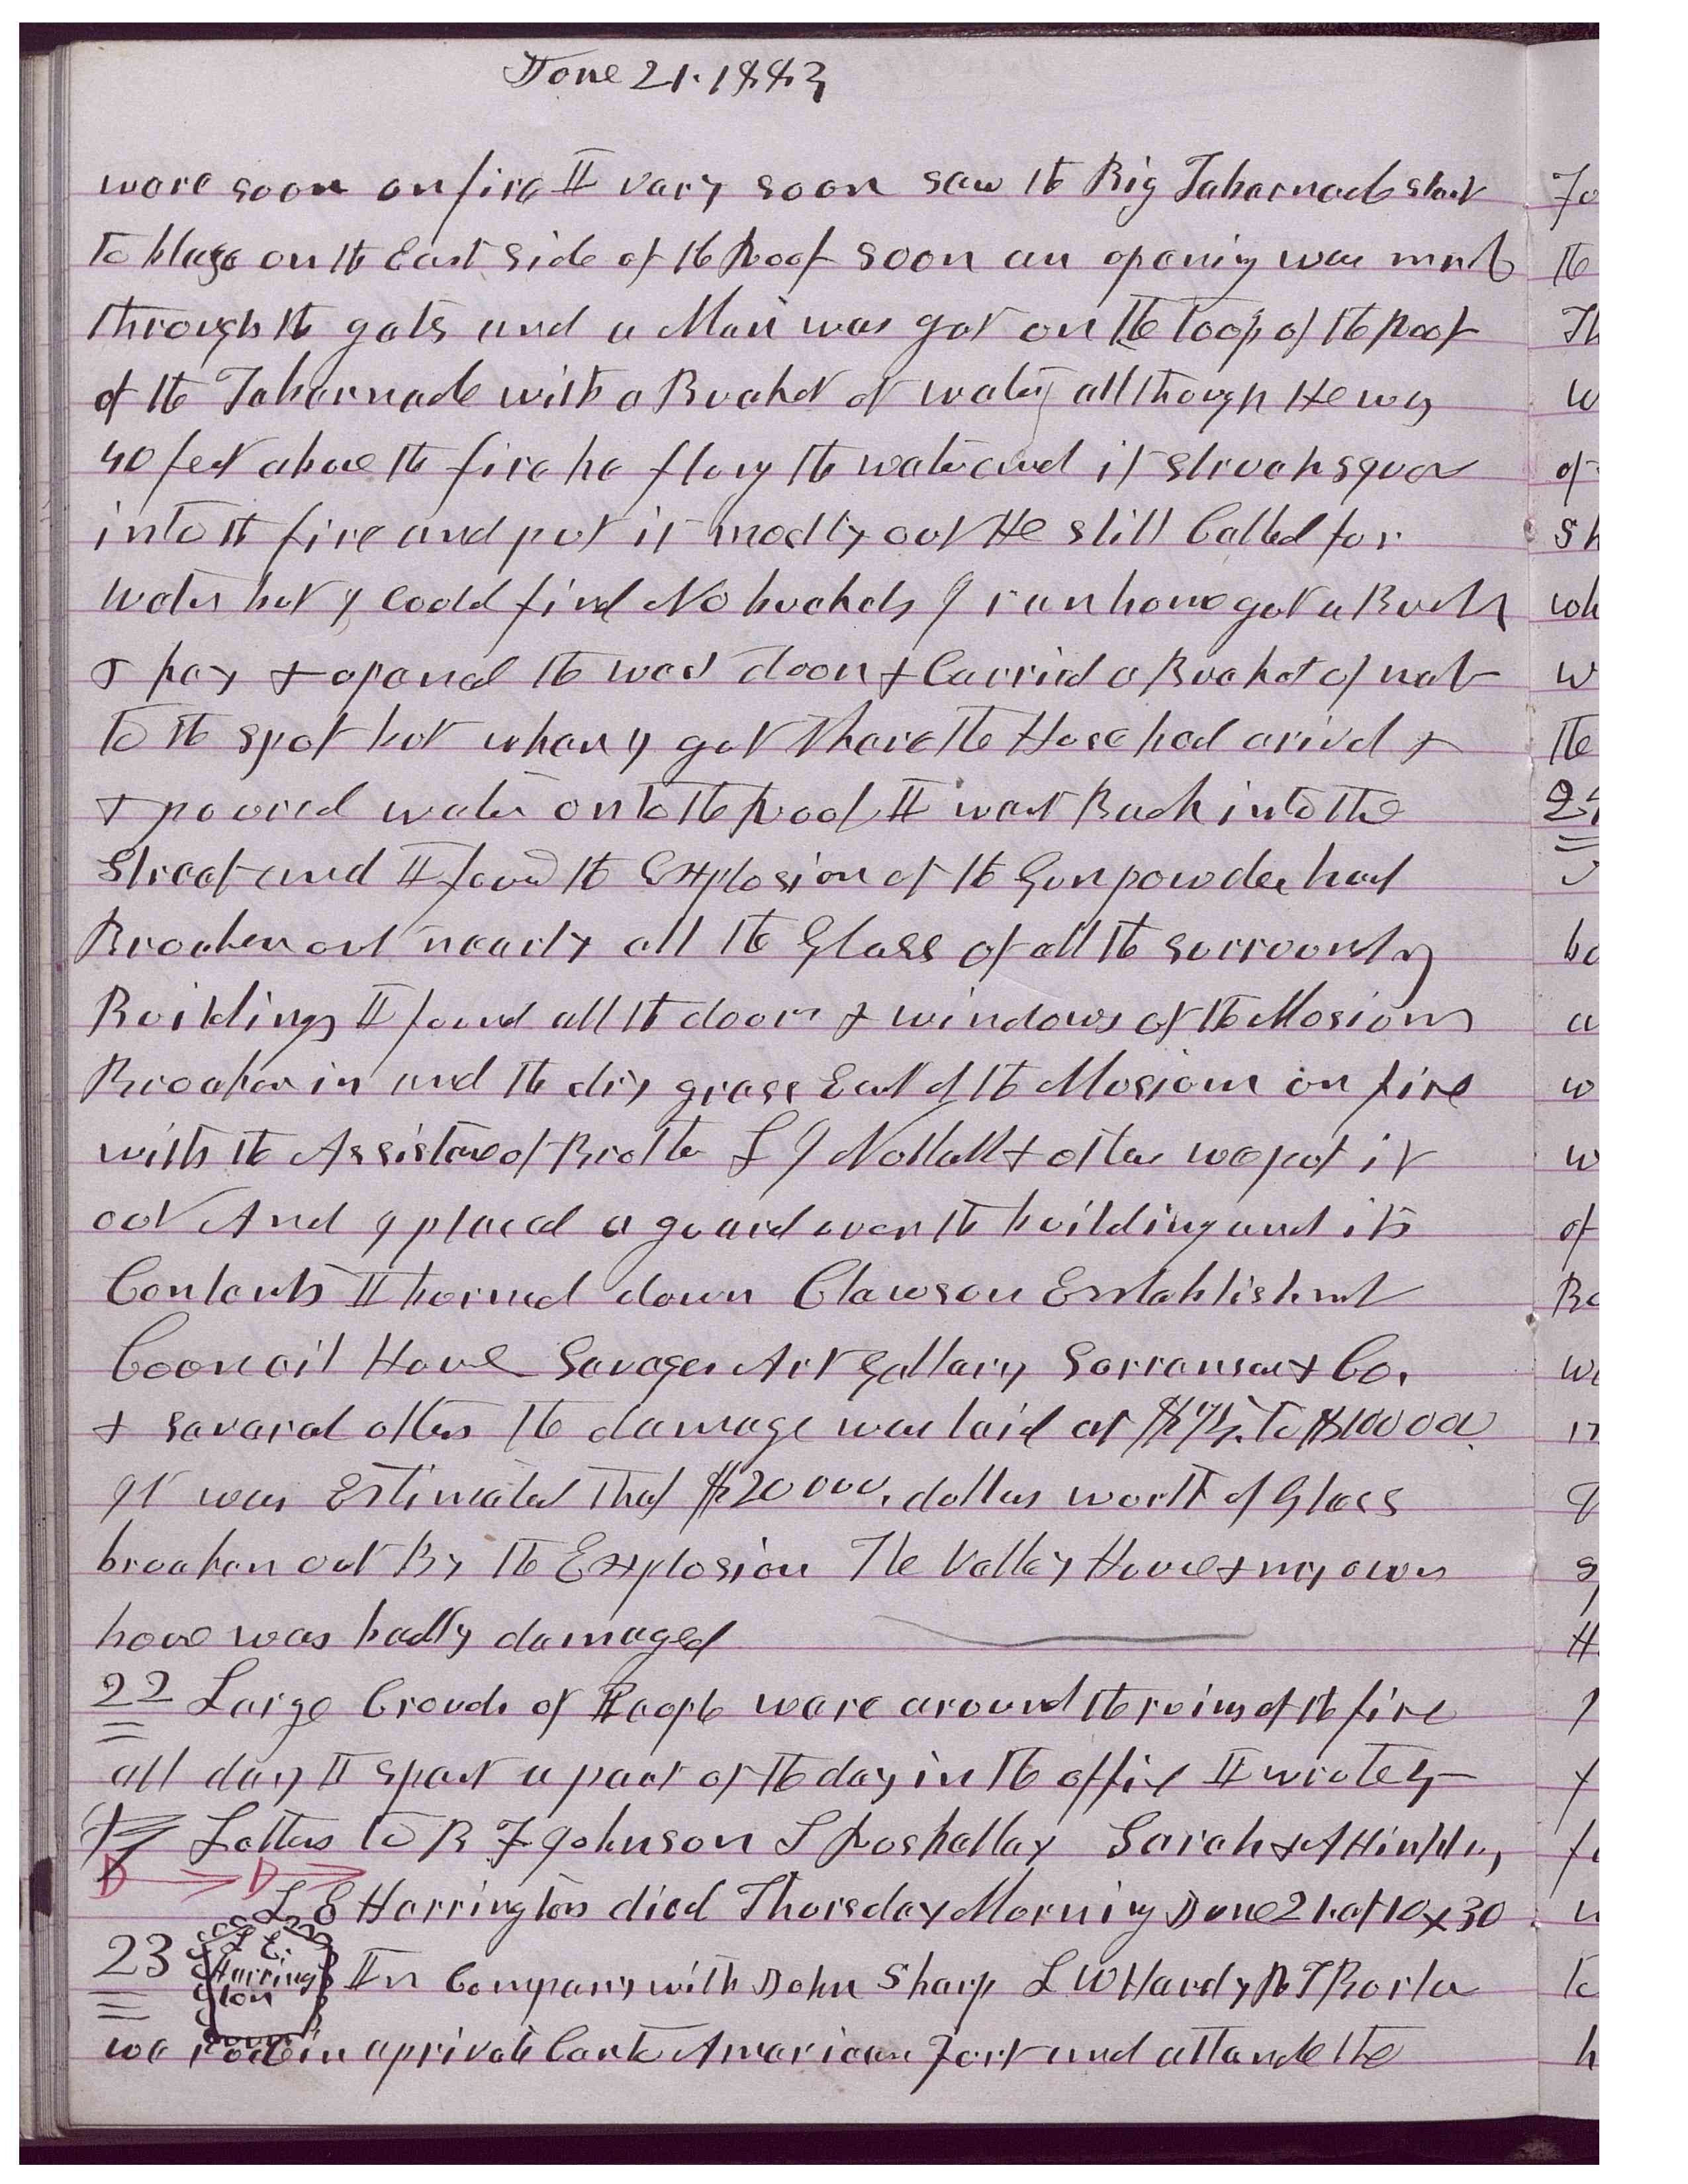 June 21. 1883
were soon on fire I vary soon saw the Big Tabernacle start
to blaze on the East side of the Roof soon an opening was made
through the gate and a Man was got on the toop of the Roof
of the Tabernacle with a Bucket of water allthough He was
40 feet above the fire he flung the water and it struck square
into the fire and put it mostly out He still Called for
water but I could find No buckets I run home got a Bucket
& key & opened the west door & Carried a Bucket of water
to the spot but when I got thare the Hose had arived &
& poored water onto the Roof I went Back into the
Street and I found the Explosion of the Gunpowder had
Broaken out nearly all the Glass of all the surrounding
Buildings I found all the doors & windows of the Mosiom
Broaken in and the dry grass East of the Mosiom on fire
with the Assistance of Brother L J Nuttall & others we put it
out And I placed a guard over the building and its
Contents It burned down Clawson Establishment
Council House Savages Art Gallary Sorranson & Co.
& several others the damage was laid at to $100000
It was Estimated that $20000, dollars worth of Glass
broaken out By the Explosion The Valley House & my own
house was badly damaged
22 Large Crouds of People ware around the ruins of the fire
all day I spent a part of the day in the office I wrote 4
Letters to B F Johnson L Roshallay Sarah & A Hinkley,
L E Harrington died Thursday Morning June 21. at 10 x 30
23 L E. Harrington In Company with John Sharp L W Hardy R T Burton
we rode in a private Car to American Fort and attended the